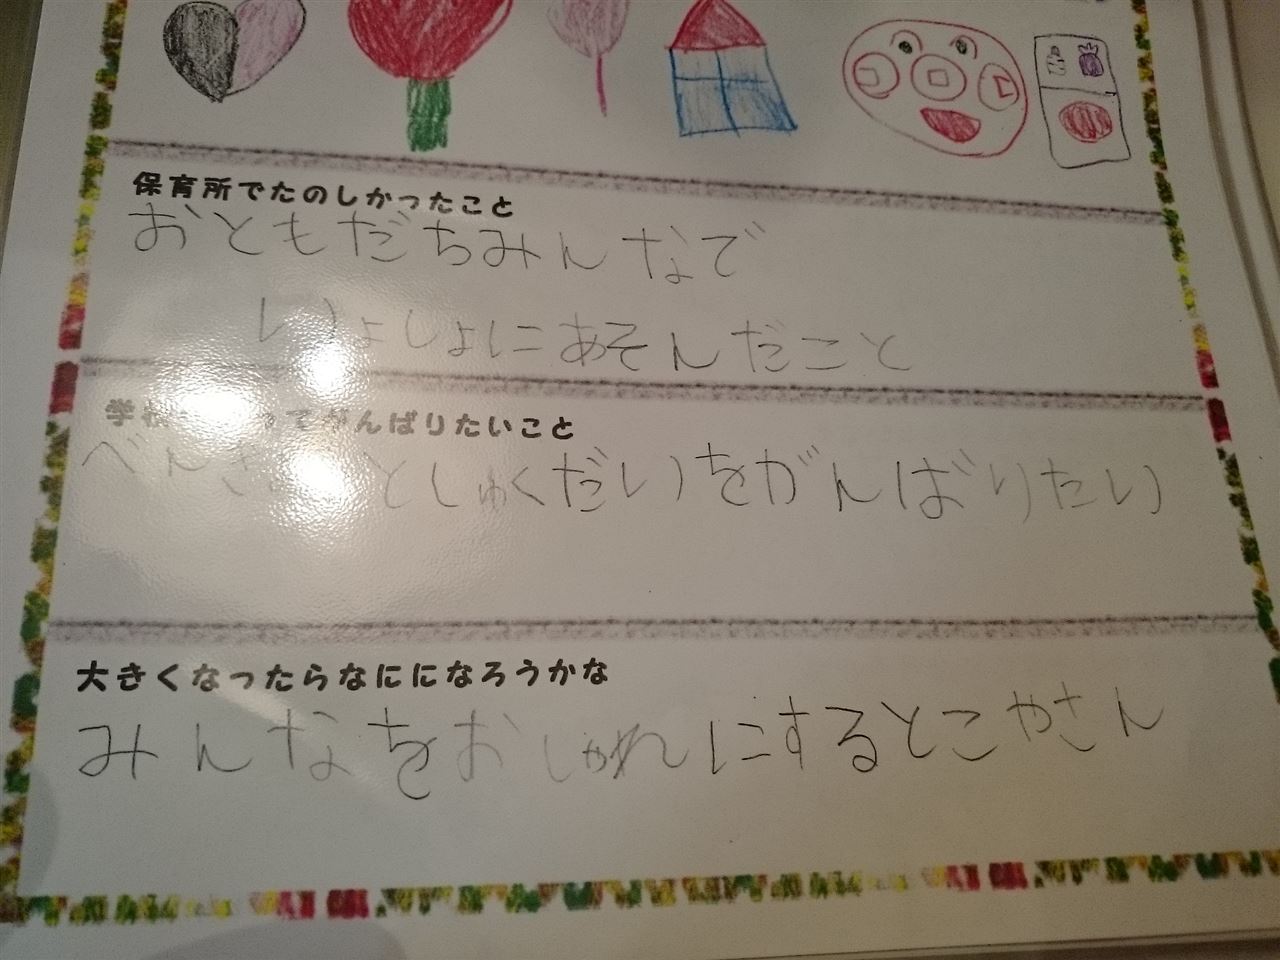 保育所でたのしかったこと
おともだちみんなで
いっしょにあそんだこと
がんばりたいこと
としゅくだいをがんばりたい
大きくなったらなにになろうかな
みんなをおしゃれにするとこやさん